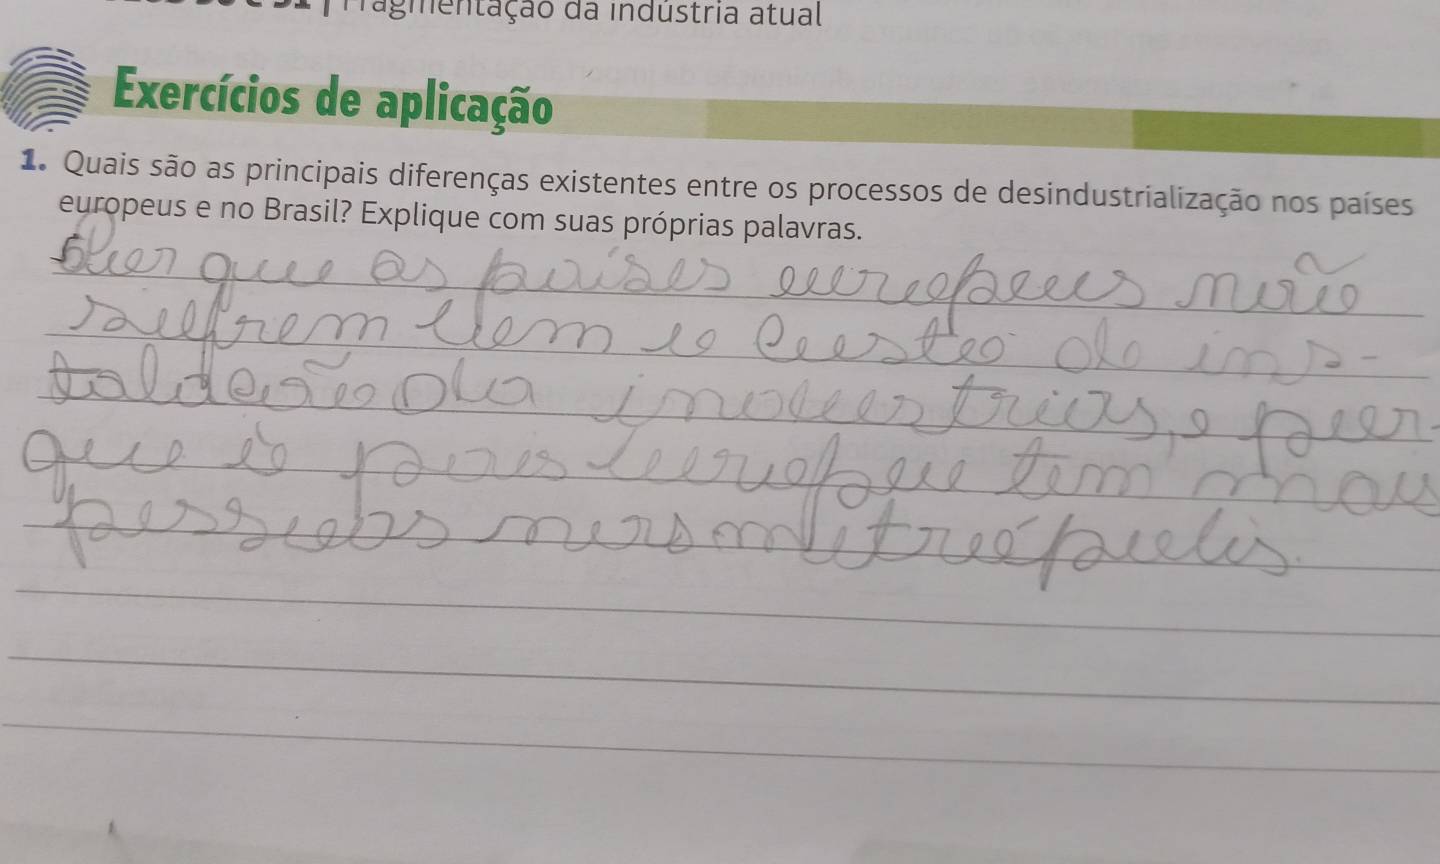 Fragmentação da indústria atual
Exercícios de aplicação
1. Quais são as principais diferenças existentes entre os processos de desindustrialização nos países
europeus e no Brasil? Explique com suas próprias palavras.
que as paises europeus não
sofrem com o custo de ins-
talação da industrias, e por
que o pais europeu tem mais
pessoas